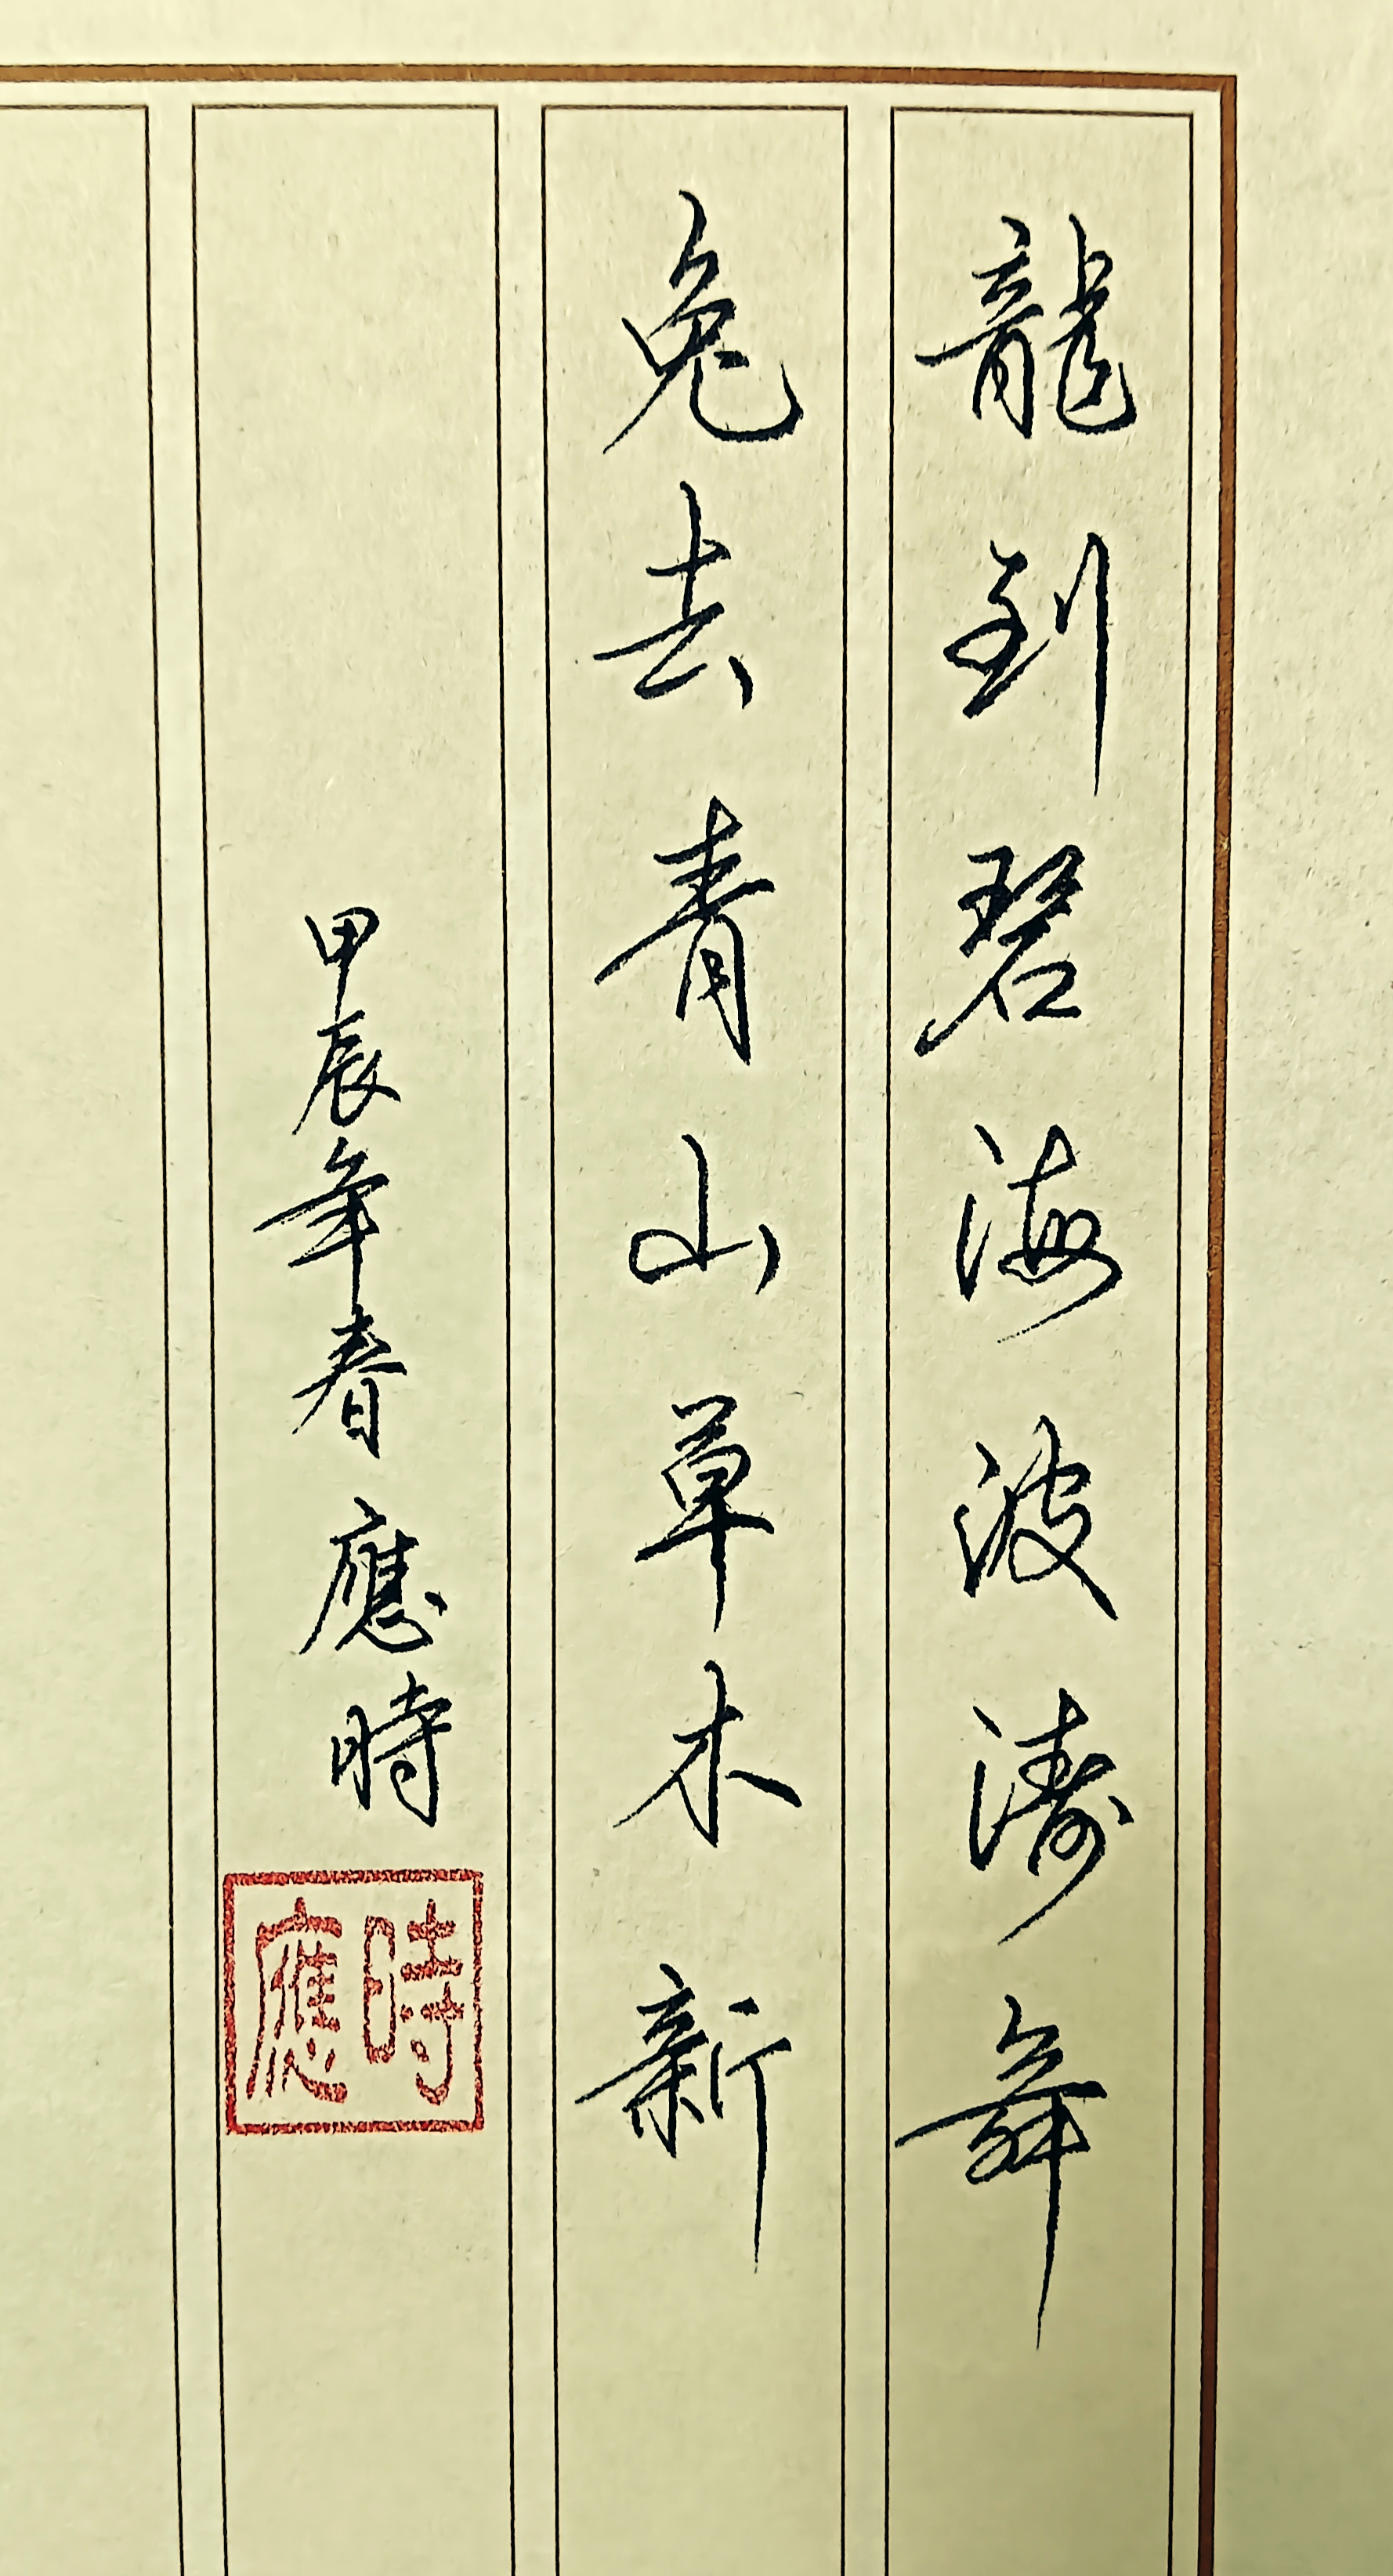 龍到碧海波濤舞
兔去青山草木新
甲辰年春 應時
時應